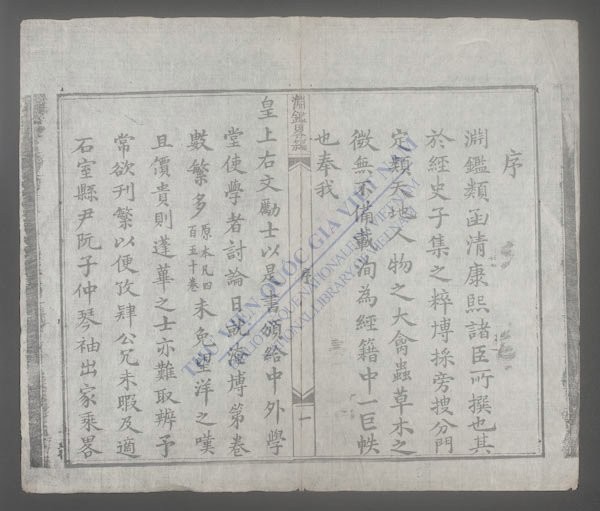 序
淵鑑類函清康熙諸臣所撰也其
於經史子集之粹博採旁搜分門
定類天地人物之大禽蟲草木之
微無不備載洵為經籍中一巨帙
也奉我
淵鑑
序
一
皇上右文勵士以是書頒給中外學
堂使學者討論日就淹博第卷
數繁多原本凡四百五十卷未免望洋之嘆
且價貴則蓬蓽之士亦難取辨予
常欲刊繁以便攷肄公冗未暇及適
石室縣尹阮子仲琴袖出家乘畧
THƯ VIỆN QUỐC GIA VIỆT NAM
BIBLIOTHÈQUE NATIONALE DU VIETNAM
NATIONAL LIBRARY OF VIETNAM